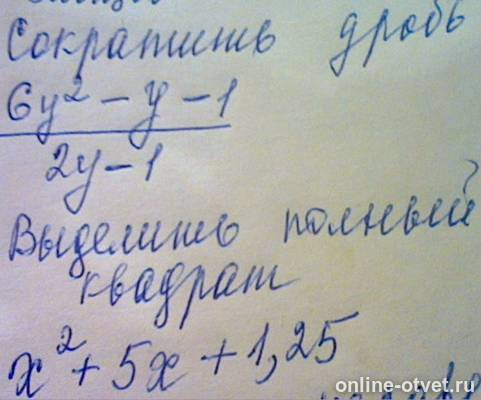 Сократить дробь
6y² - y - 1
2y - 1
Выделить полный
квадрат
x² + 5x + 1,25
online-otvet.ru